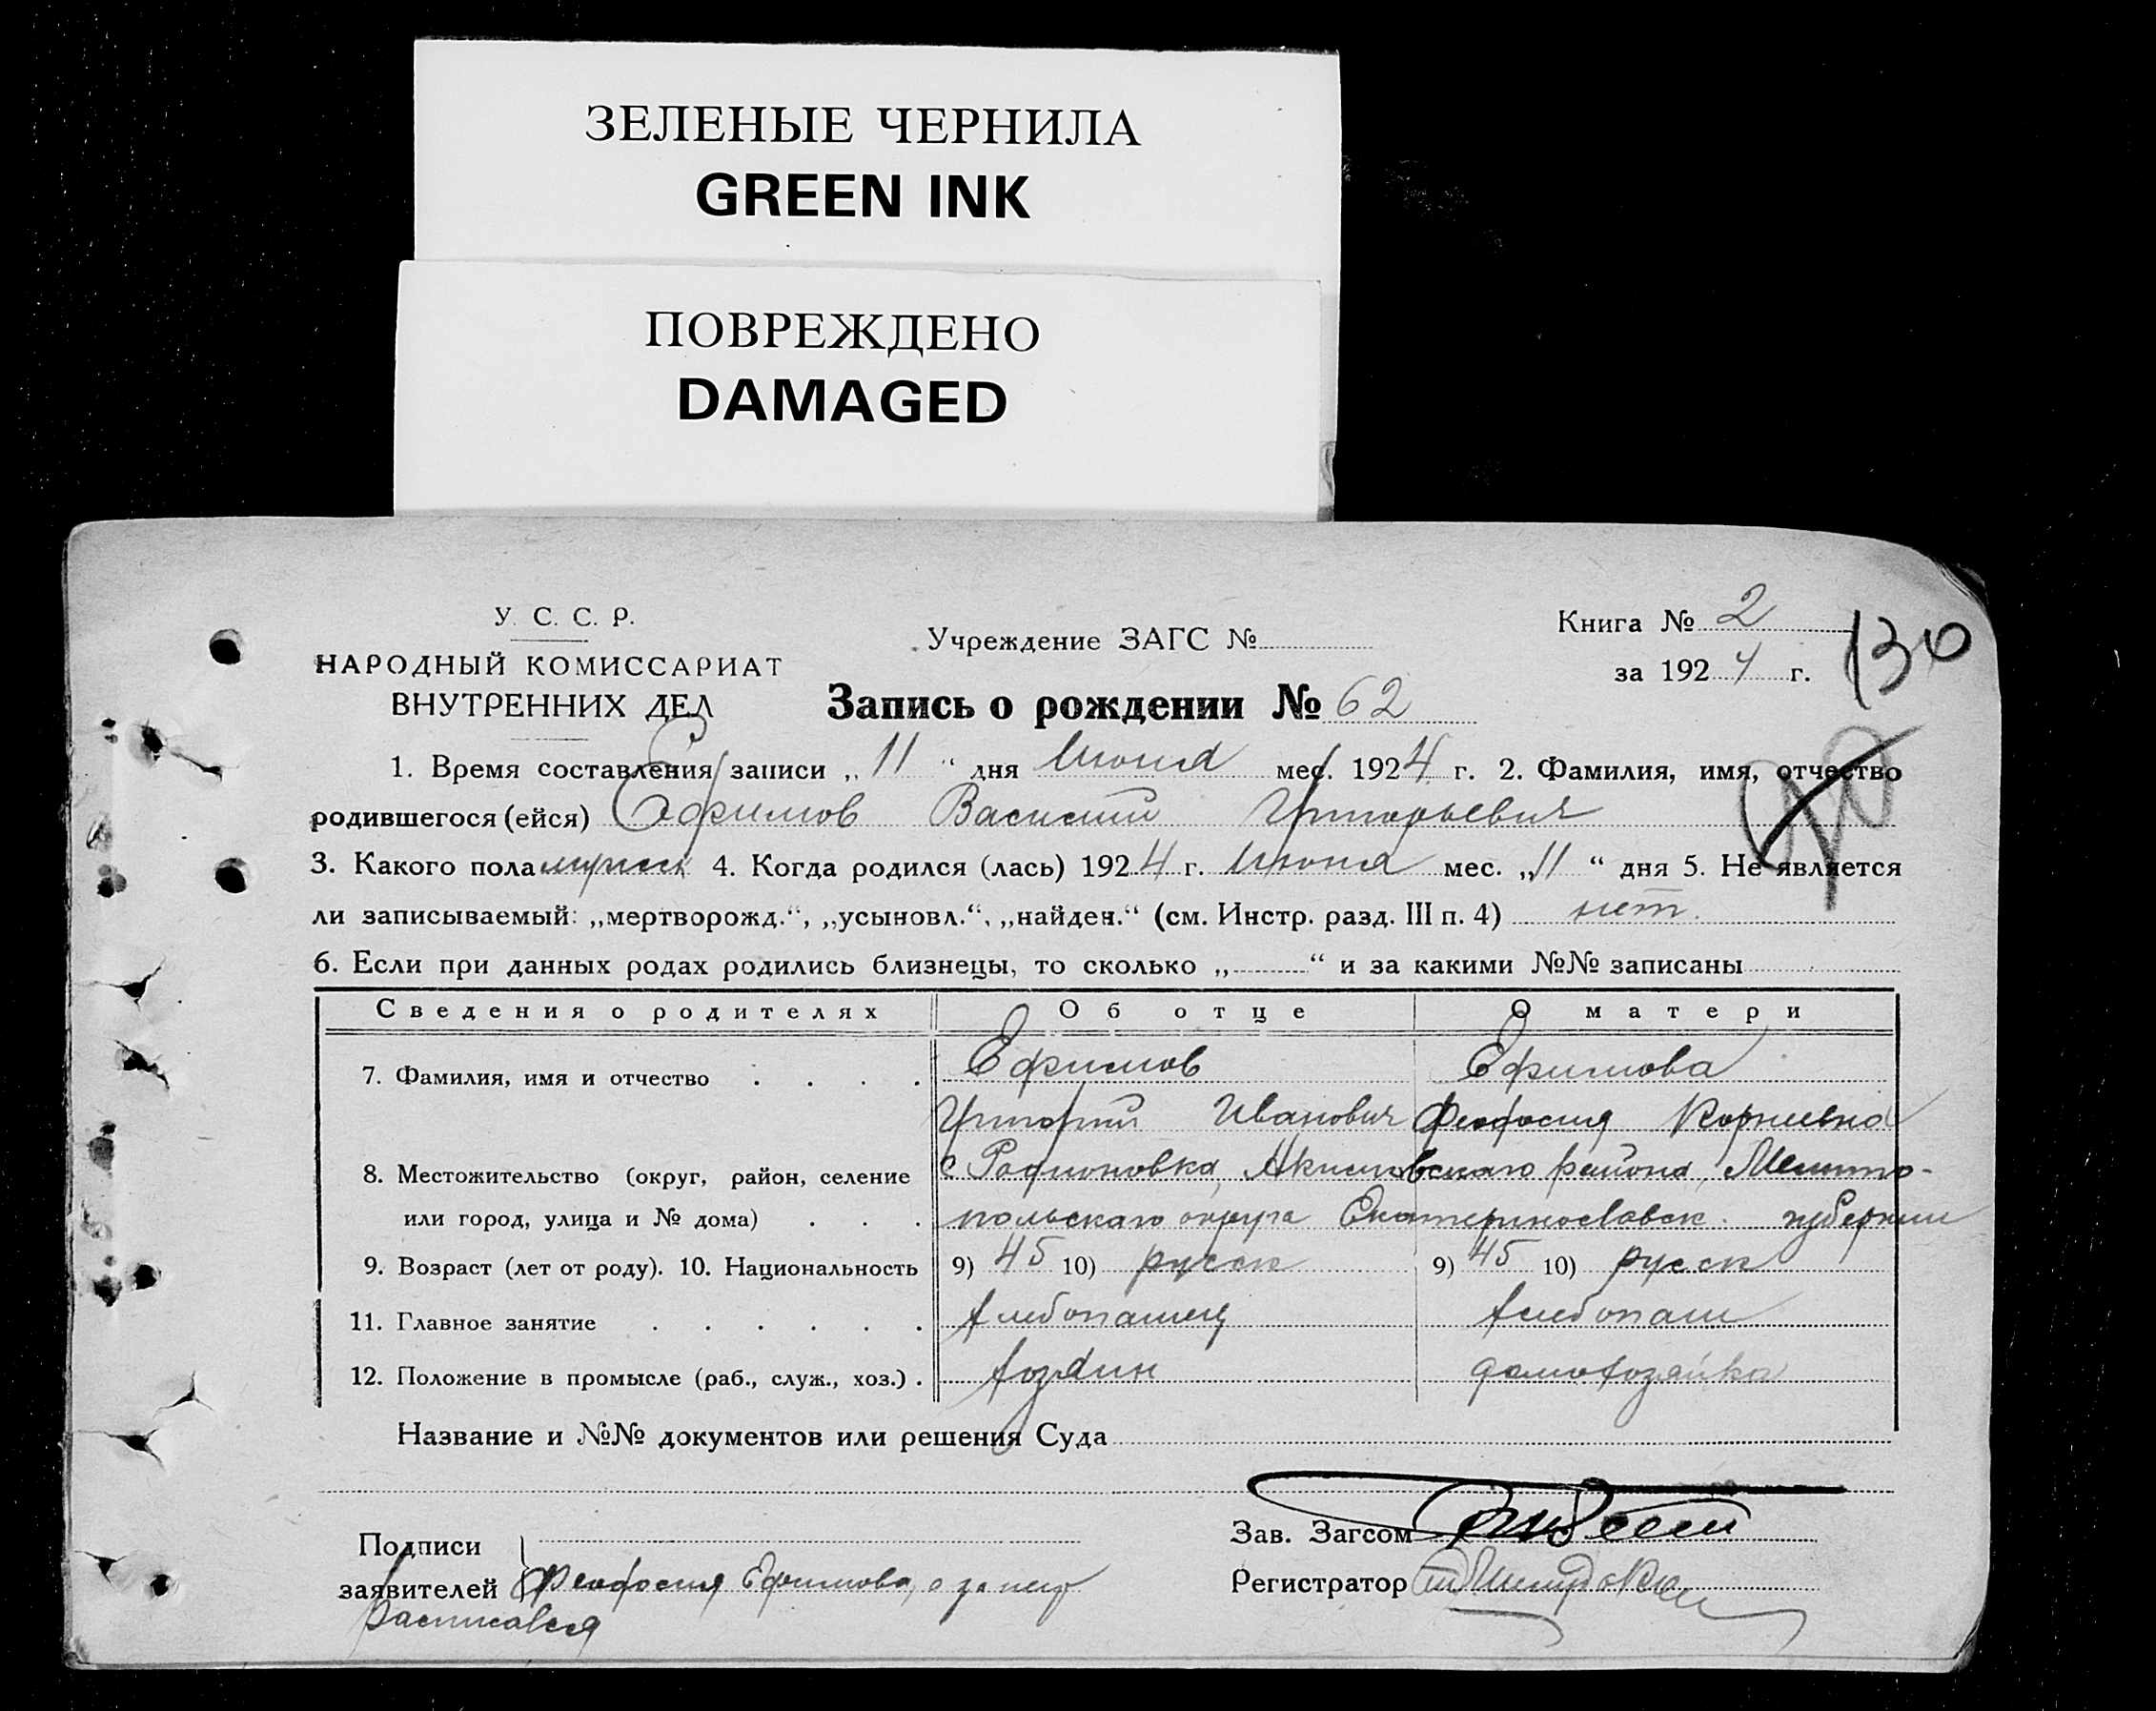 ЗЕЛЕНЫЕ ЧЕРНИЛА
GREEN INK
ПОВРЕЖДЕНО
DAMAGED
У. С. С. Р.
НАРОДНЫЙ КОМИССАРИАТ
ВНУТРЕННИХ ДЕЛ
Учреждение ЗАГС №
Книга № 2
за 1924 г.
130
Запись о рождении № 62
1. Время составления записи „11“ дня Июня мес. 1924 г. 2. Фамилия, имя, отчество
родившегося (ейся) Ефимов Василий Григорьевич
3. Какого пола мужск 4. Когда родился (лась) 1924 г. Июня мес. „11“ дня 5. Не является
ли записываемый: „мертворожд.“, „усыновл.“, „найден.“ (см. Инстр. разд. III п. 4) нет.
6. Если при данных родах родились близнецы, то сколько „ “ и за какими №№ записаны
Сведения о родителях Об отце О матери
7. Фамилия, имя и отчество . . . . Ефимов Ефимова
Григорий Иванович Феодосия Корниевна
8. Местожительство (округ, район, селение с Родионовка, Акимовскаго района, Мелито-
или город, улица и № дома) . . . польскаго округа Екатеринославск. губернии
9. Возраст (лет от роду). 10. Национальность 9) 45 10) русск 9) 45 10) русск
11. Главное занятие . . . . . . хлебопашец хлебопаш
12. Положение в промысле (раб., служ., хоз.) . хозяин домохозяйка
Название и №№ документов или решения Суда
Подписи
заявителей Феодосия Ефимова, а за нее
расписався
Зав. Загсом
Регистратор